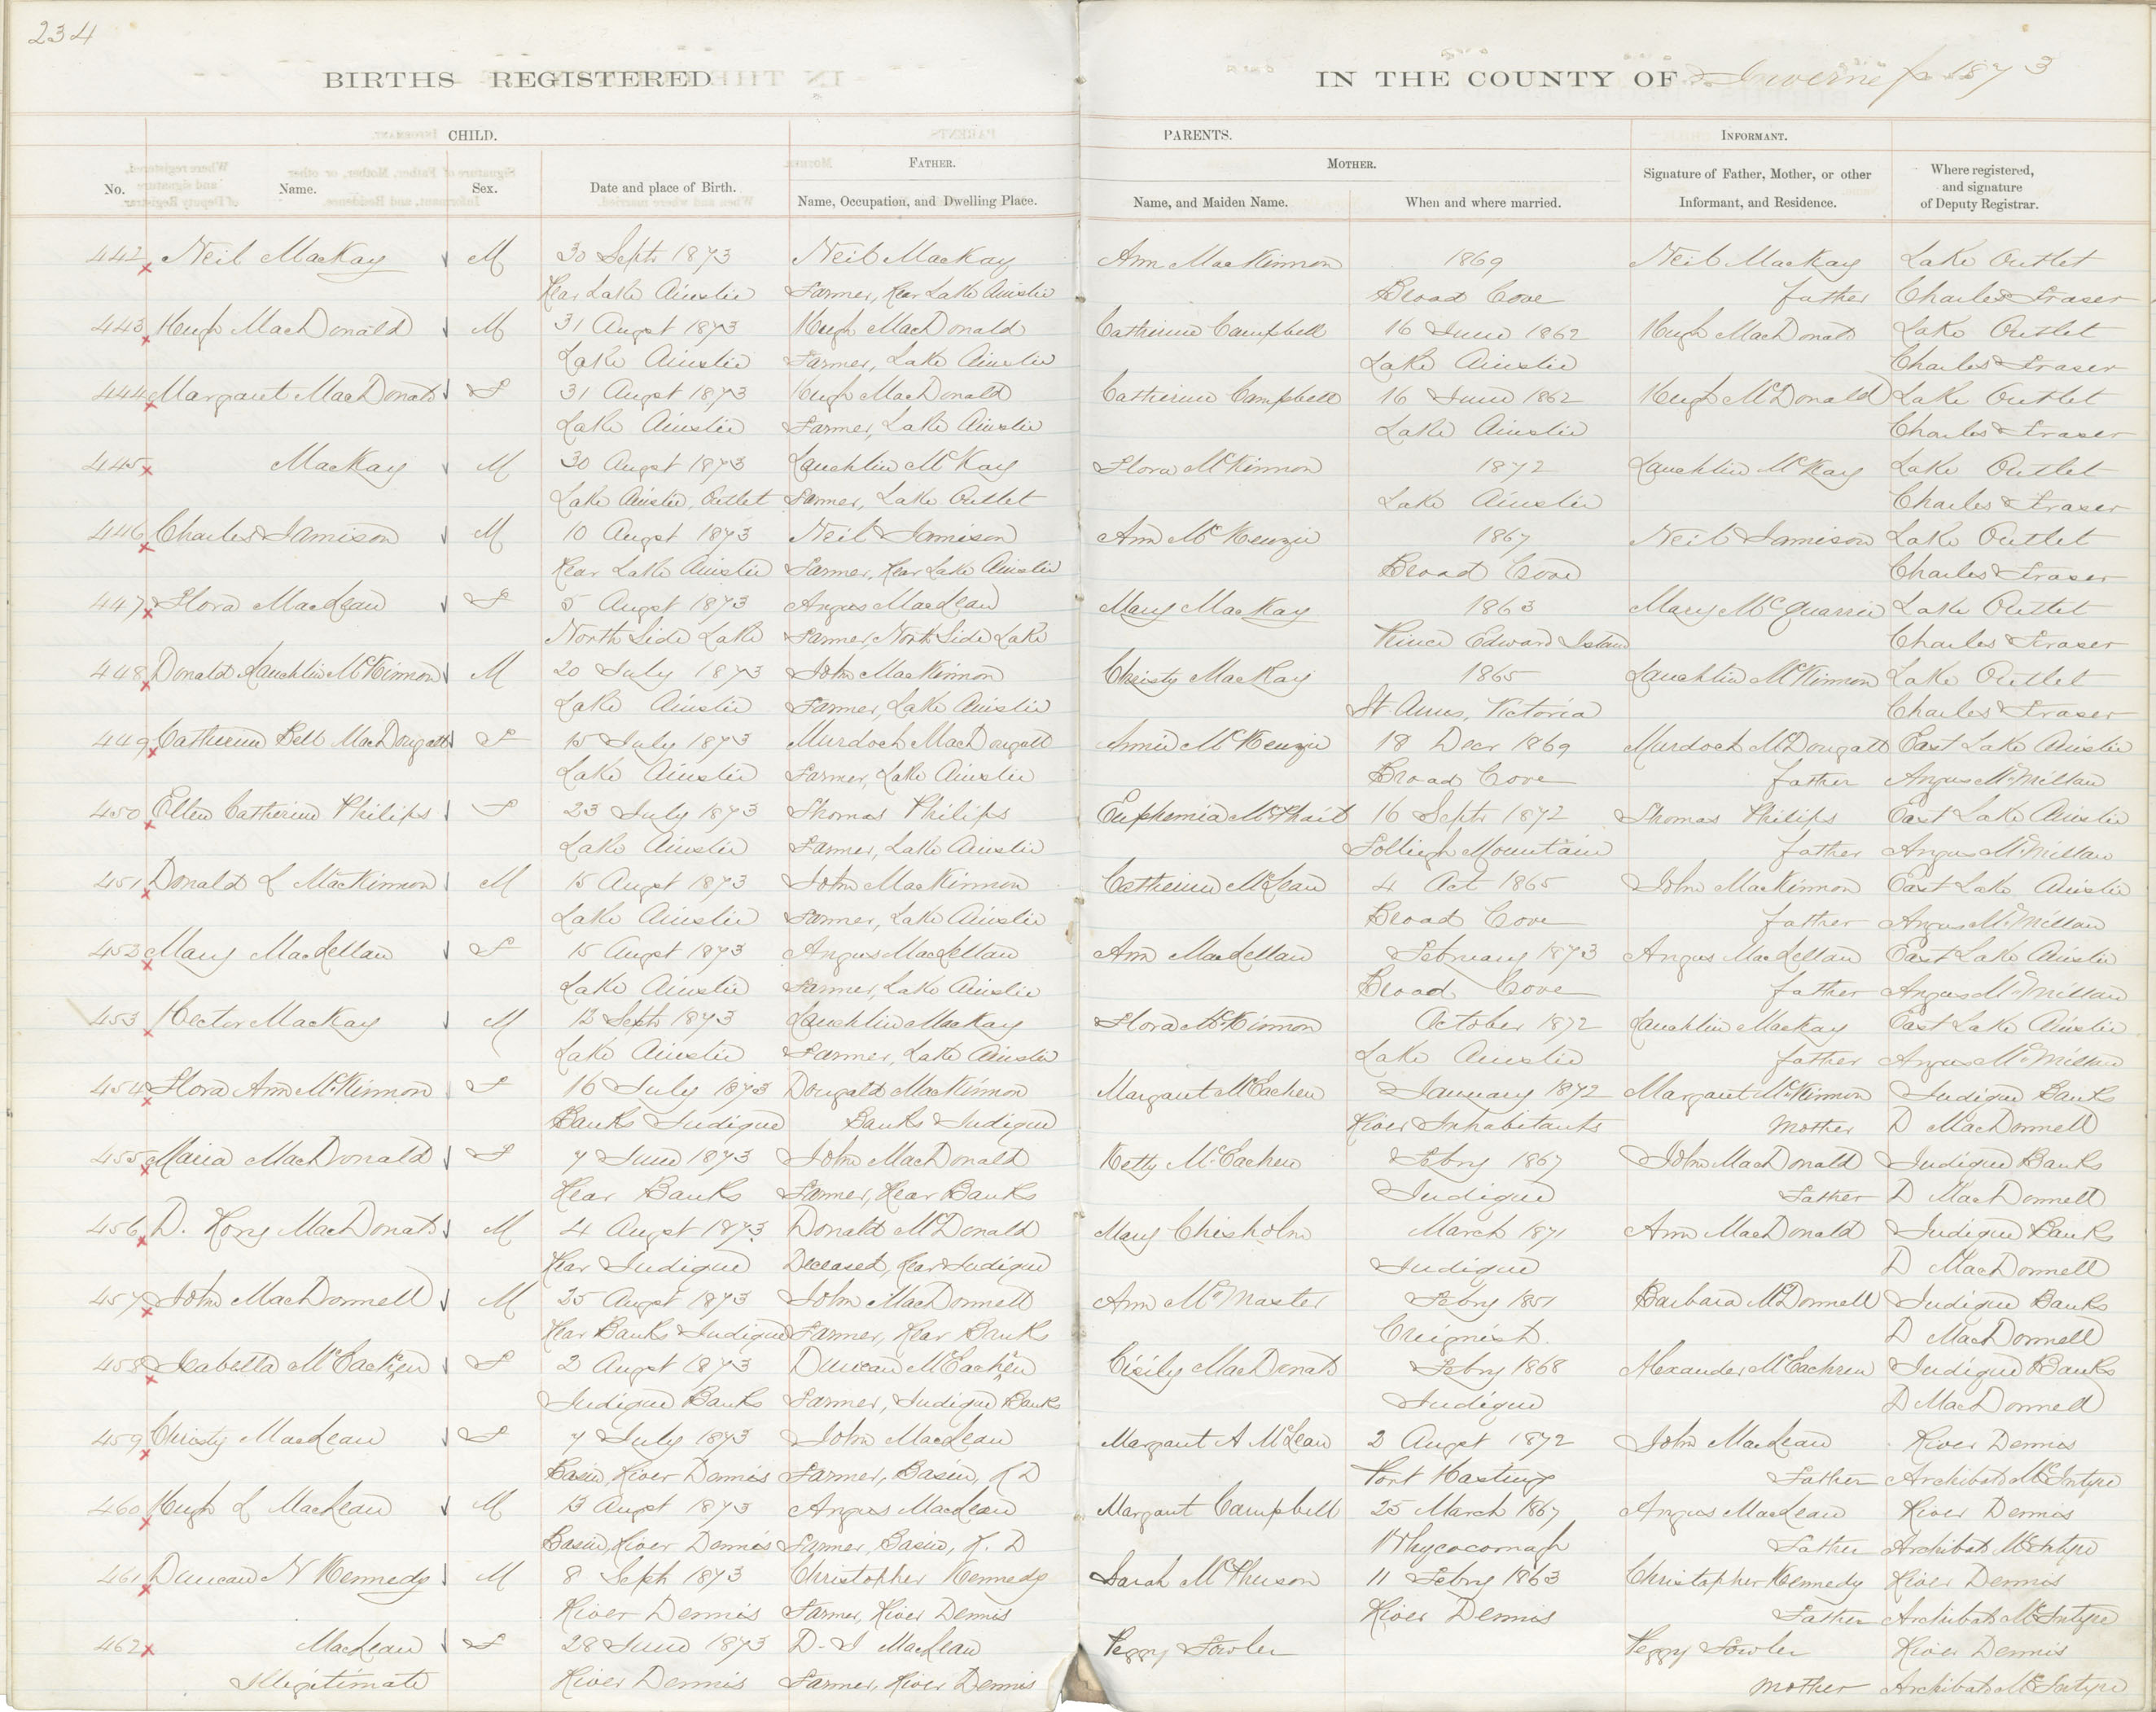 234
BIRTHS REGISTERED IN THE COUNTY OF Inverness 1873
CHILD. PARENTS. INFORMANT.
FATHER. MOTHER.
No. Name. Sex. Date and place of Birth. Name, Occupation, and Dwelling Place. Name, and Maiden Name. When and where married. Signature of Father, Mother, or other Informant, and Residence. Where registered, and signature of Deputy Registrar.
442 Neil MacKay M 30 Septr 1873 Neil MacKay Ann MacKinnon 1869 Neil MacKay Lake Outlet
Rear Lake Ainslie Farmer, Rear Lake Ainslie Broad Cove father Charles Fraser
443 Hugh MacDonald M 31 Augst 1873 Hugh MacDonald Catherine Campbell 16 June 1862 Hugh MacDonald Lake Outlet
Lake Ainslie Farmer, Lake Ainslie Lake Ainslie Charles Fraser
444 Margaret MacDonald F 31 Augst 1873 Hugh MacDonald Catherine Campbell 16 June 1862 Hugh McDonald Lake Outlet
Lake Ainslie Farmer, Lake Ainslie Lake Ainslie Charles Fraser
445 MacKay M 30 Augst 1873 Lauchlin McKay Flora McKinnon 1872 Lauchlin McKay Lake Outlet
Lake Ainslie, Outlet Farmer, Lake Outlet Lake Ainslie Charles Fraser
446 Charles Jamison M 10 Augst 1873 Neil Jamison Ann McKenzie 1867 Neil Jamison Lake Outlet
Rear Lake Ainslie Farmer, Rear Lake Ainslie Broad Cove Charles Fraser
447 Flora MacLean F 5 Augst 1873 Angus MacLean Mary MacKay 1863 Mary McQuarrie Lake Outlet
North Side Lake Farmer, North Side Lake Prince Edward Island Charles Fraser
448 Donald Lauchlin McKinnon M 20 July 1873 John MacKinnon Christy MacKay 1865 Lauchlin McKinnon Lake Outlet
Lake Ainslie Farmer, Lake Ainslie St. Anns, Victoria Charles Fraser
449 Catherine Bell MacDougall F 15 July 1873 Murdoch MacDougall Annie McKenzie 18 Decr 1869 Murdoch McDougall East Lake Ainslie
Lake Ainslie Farmer, Lake Ainslie Broad Cove father Angus McMillan
450 Ellen Catherine Philips F 23 July 1873 Thomas Philips Euphemia McPhail 16 Septr 1872 Thomas Philips East Lake Ainslie
Lake Ainslie Farmer, Lake Ainslie Mountain father Angus McMillan
451 Donald L MacKinnon M 15 Augst 1873 John MacKinnon Catherine McLean 4 Oct 1865 John MacKinnon East Lake Ainslie
Lake Ainslie Farmer, Lake Ainslie Broad Cove father Angus McMillan
452 Mary MacLellan F 15 Augst 1873 Angus MacLellan Ann MacLellan February 1873 Angus MacLellan East Lake Ainslie
Lake Ainslie Farmer, Lake Ainslie Broad Cove father Angus McMillan
453 Hector MacKay M 12 Septr 1873 Lauchlin MacKay Flora McKinnon October 1872 Lauchlin MacKay East Lake Ainslie
Lake Ainslie Farmer, Lake Ainslie Lake Ainslie father Angus McMillan
454 Flora Ann McKinnon F 16 July 1873 Dougald MacKinnon Margaret McEachen January 1872 Margaret McKinnon Judique Banks
Banks Judique Banks Judique River Inhabitants Mother D MacDonnell
455 Maria MacDonald F 7 June 1873 John MacDonald Ketty McEachen Febry 1867 John MacDonald Judique Banks
Rear Banks Farmer, Rear Banks Judique Father D MacDonnell
456 D. Rory MacDonald M 4 Augst 1873 Donald McDonald Mary Chisholm March 1871 Ann MacDonald Judique Banks
Rear Judique Deceased, Rear Judique Judique D MacDonnell
457 John MacDonnell M 25 Augst 1873 John MacDonnell Ann McMaster Febry 1851 Barbara McDonnell Judique Banks
Rear Banks Judique Farmer, Rear Banks Creignish. D MacDonnell
458 Isabella McEachen F 2 Augst 1873 Duncan McEachen Cicily MacDonald Febry 1868 Alexander McEachren Judique Banks
Judique Banks Farmer, Judique Banks Judique D MacDonnell
459 Christy MacLean F 7 July 1873 John MacLean Margaret A McLean 2 Augst 1872 John MacLean River Dennis
Basin, River Dennis Farmer, Basin, R D Port Hastings Father Archibald McIntyre
460 Hugh L MacLean M 13 Augst 1873 Angus MacLean Margaret Campbell 25 March 1867 Angus MacLean River Dennis
Basin, River Dennis Farmer, Basin, R. D Whycocomah Father Archibald McIntyre
461 Duncan N Kennedy M 8 Septr 1873 Christopher Kennedy Sarah McPherson 11 Febry 1863 Christopher Kennedy River Dennis
River Dennis Farmer, River Dennis River Dennis Father Archibald McIntyre
462 MacLean F 28 June 1873 D. J MacLean Peggy Fowler Peggy Fowler River Dennis
Illegitimate River Dennis Farmer, River Dennis Mother Archibald McIntyre